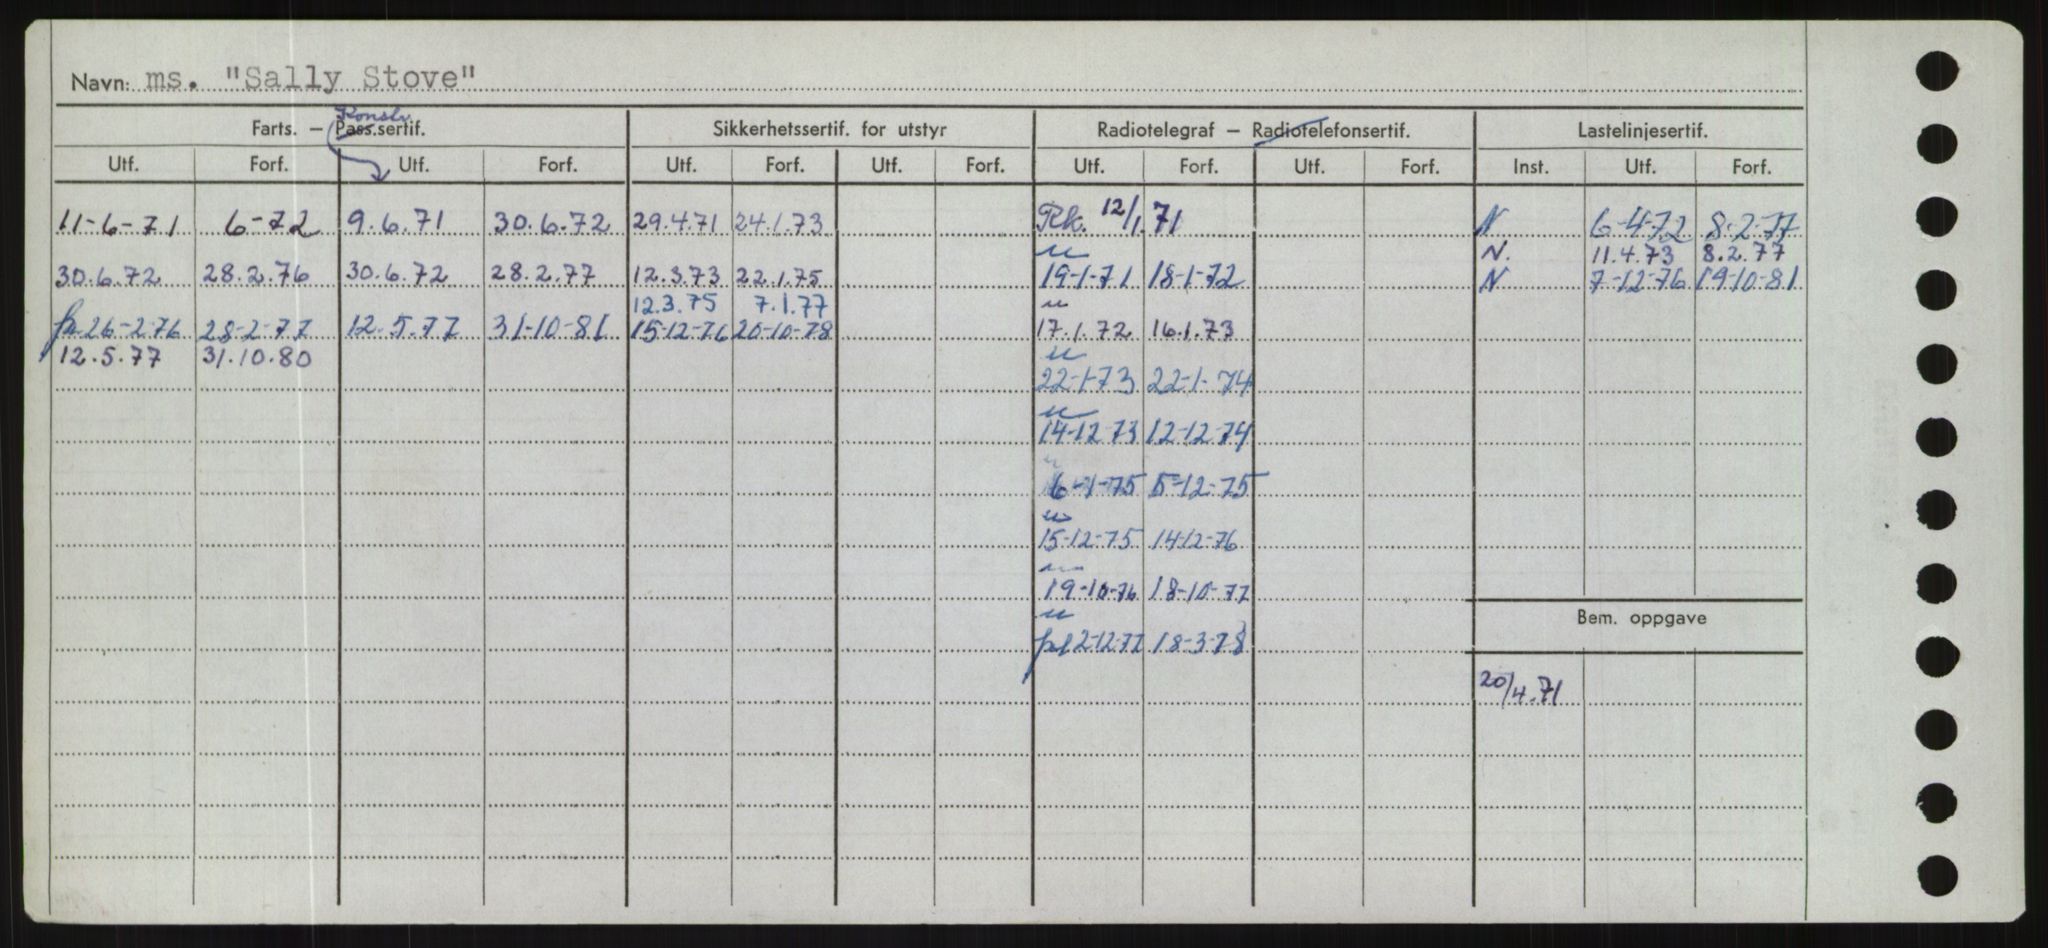 Navn: ms. "Sally Stove"
Konstr
Farts. – Pass.sertif. Sikkerhetssertif. for utstyr Radiotelegraf – Radiotelefonsertif. Lastelinjesertif.
Utf. Forf. Utf. Forf. Utf. Forf. Utf. Forf. Utf. Forf. Utf. Forf. Inst. Utf. Forf.
11-6-71 6-72 9.6.71 30.6.72 29.4.71 24.1.73 Rk. 12/1.71 N 6-4-72 8-2-77
u N. 11.4.73 8.2.77
30.6.72 28.2.76 30.6.72 28.2.77 12.3.73 22.1.75 19-1-71 18-1-72 N 7-12-76 19-10-81
12.3.75 7.1.77 u
fr 26-2-76 28-2-77 12.5.77 31-10-81 15-12-76 20-10-78 17.1.72 16.1.73
12.5.77 31.10.80 u
22-1-73 22-1-74
u
14-12-73 12-12-74
u
6-1-75 5-12-75
u
15-12-75 14-12-76
u
19-10-76 18-10-77
u
Bem. oppgave
fr 12-12-77 18-3-78
20/4.71